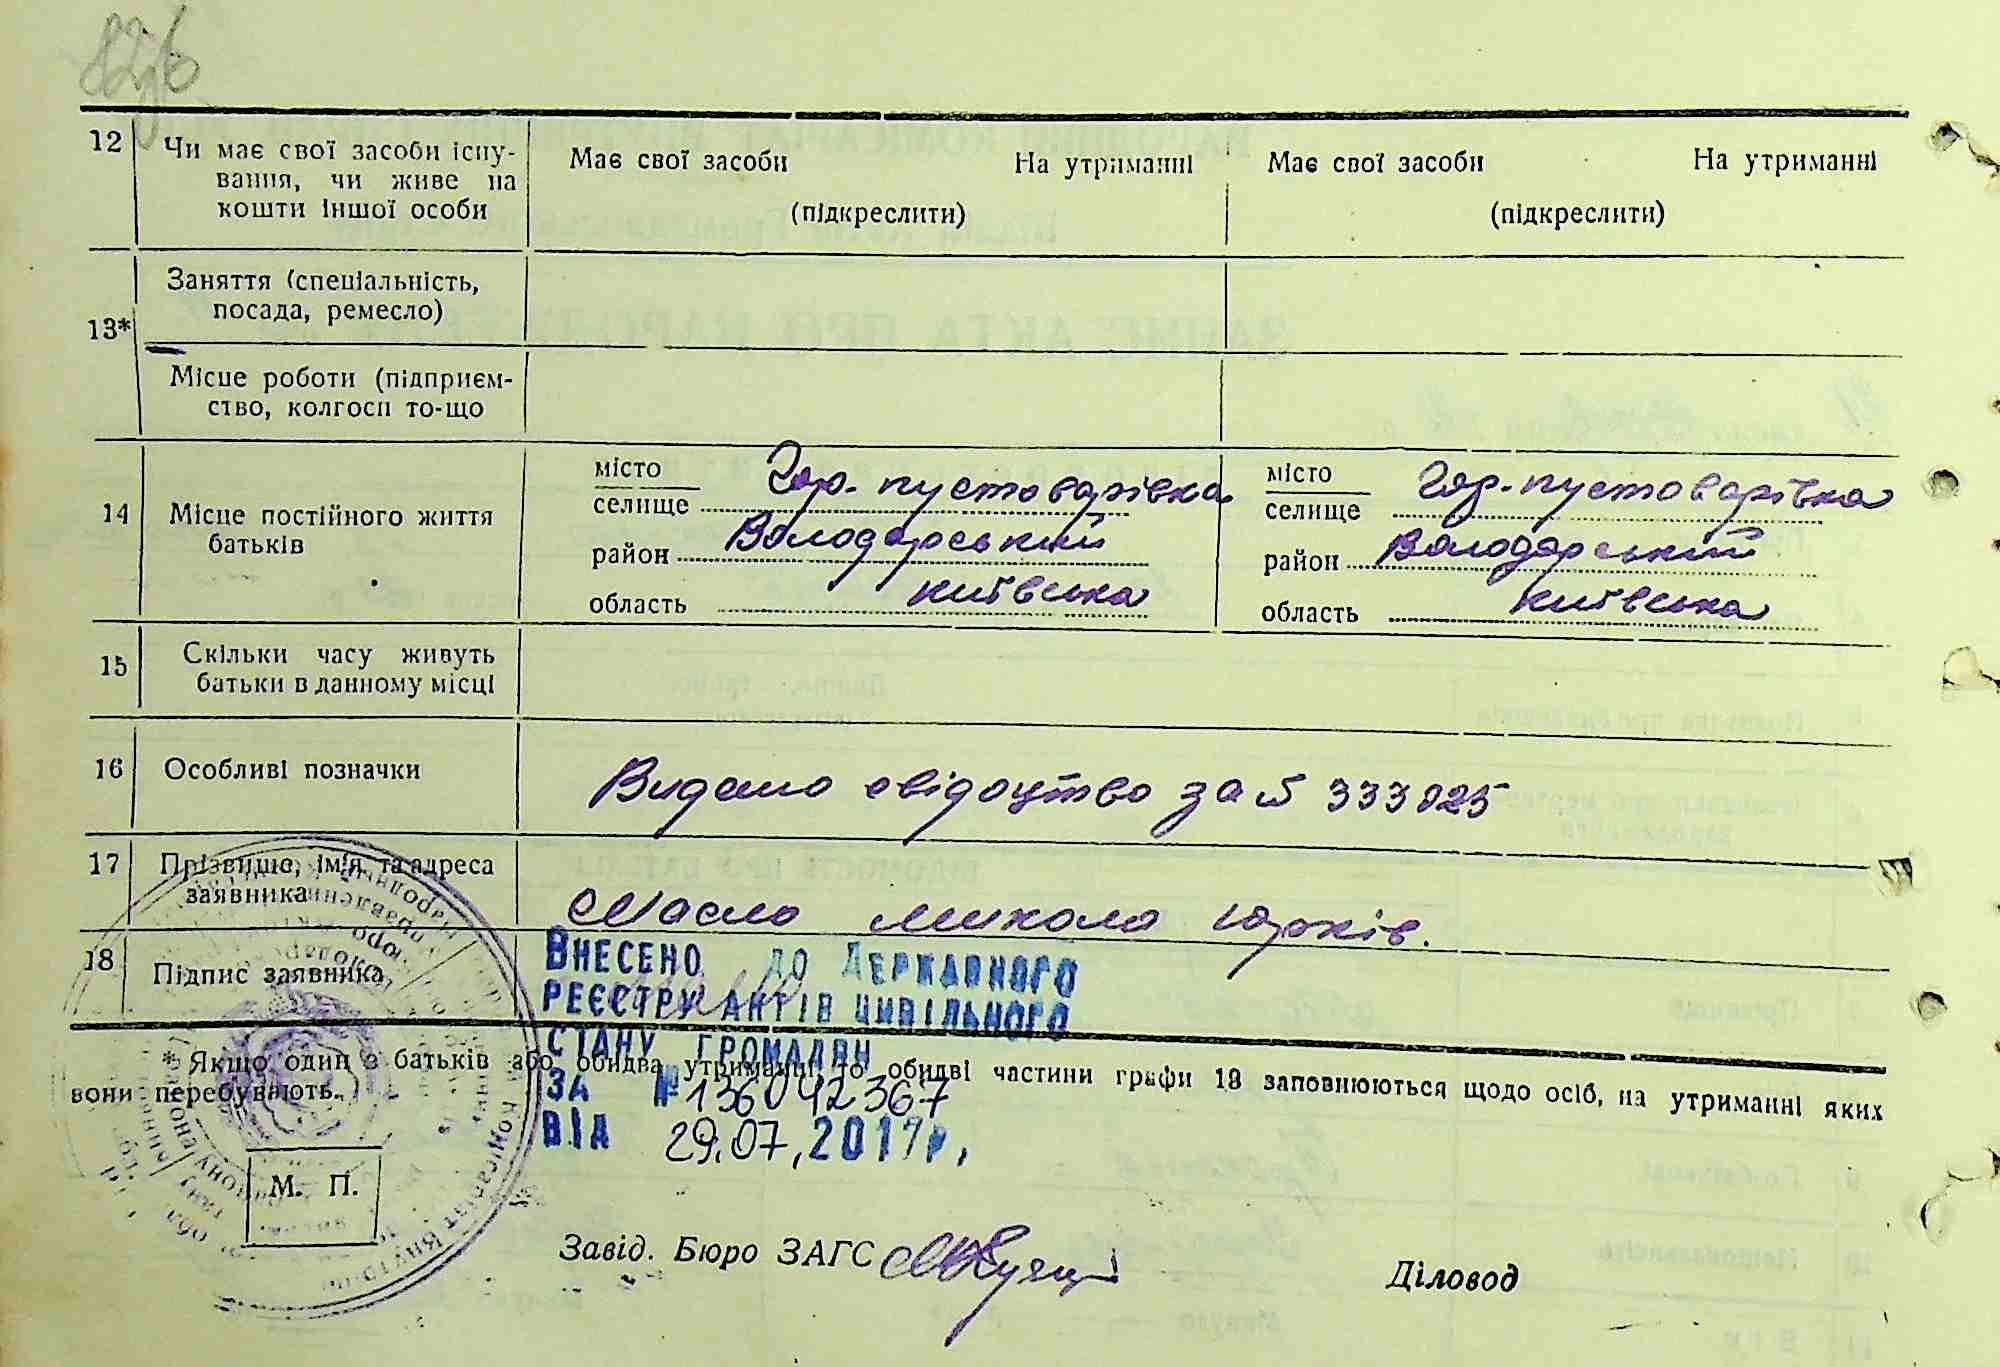 12
Чи має свої засоби існу-
вання, чи живе на
кошти іншої особи
Має свої засоби На утриманні
(підкреслити)
Має свої засоби На утриманні
(підкреслити)
13*
Заняття (спеціальність,
посада, ремесло)
Місце роботи (підприєм-
ство, колгосп то-що
14
Місце постійного життя
батьків
місто
селище Гор. пустоварівка
район Володарський
область київська
місто
селище Гор. пустоварівка
район Володарський
область київська
15
Скільки часу живуть
батьки в данному місці
16
Особливі позначки
Видано свідоцтво за № 333025
17
Прізвище, ім'я та адреса
заявника
Масло Микола Юрків.
18
Підпис заявника
Внесено до Державного
реєстру актів цивільного
стану громадян
за №136042367
від 29.07.2017р.
* Якщо один з батьків або обидва утриманці, то обидві частини графи 13 заповнюються щодо осіб, на утриманні яких
вони перебувають.
М. П.
Завід. Бюро ЗАГС
Діловод